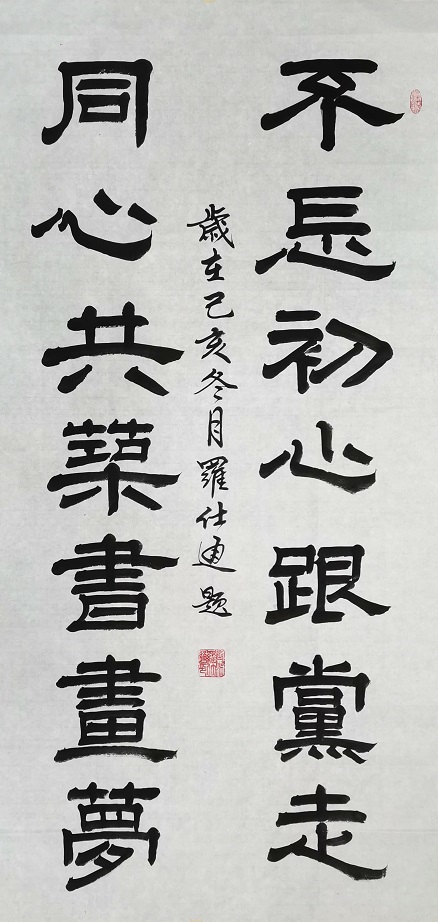 不忘初心跟黨走
同心共築書畫夢
歲在己亥冬月羅仕通題